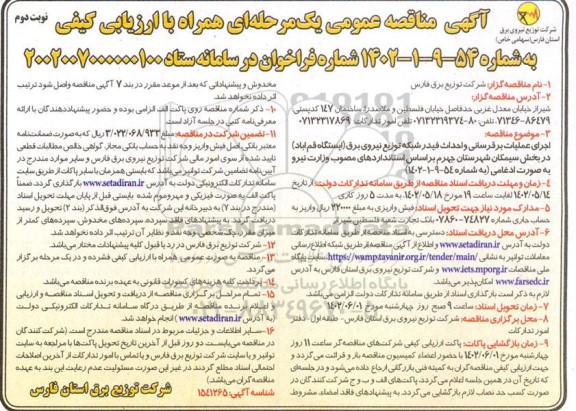 نوبت دوم
آگهی مناقصه عمومی یک‌مرحله‌ای همراه با ارزیابی کیفی
به شماره ۵۴-۹-۱-۱۴۰۲ شماره فراخوان در سامانه ستاد
شرکت توزیع نیروی برق
استان فارس (سهامی خاص)
۱- نام مناقصه‌گزار: شرکت توزیع برق فارس
۲- آدرس مناقصه‌گزار:
شیراز خیابان معدل غربی حدفاصل خیابان فلسطین و ملاصدرا ساختمان ۱۴۷ کدپستی
۳- موضوع مناقصه:
اجرای عملیات برقرسانی واحداث فیدر شبکه توزیع نیروی برق (ایستگاه قم آباد)
در بخش سیمکان شهرستان جهرم براساس استانداردهای مصوب وزارت نیرو
به صورت ادغامی (به شماره ۵۴-۹-۱-۱۴۰۲)
۴- زمان و مهلت دریافت اسناد مناقصه از طریق سامانه تدارکات دولت: از تاریخ
۱۴۰۲/۰۵/۱۴ لغایت ساعت ۱۹ مورخ ۱۴۰۲/۰۵/۱۸ به مدت ۵ روز کاری
۵- مدارک مورد نیاز جهت تحویل اسناد: فیش واریزی به مبلغ ریال واریز به
حساب جاری شماره بانک تجارت شعبه فلسطین شیراز
۶- آدرس محل دریافت اسناد: دسترسی به اسناد مناقصه از طریق سامانه تدارکات
دولت به آدرس www.setadiran.ir و اطلاع از آگهی مناقصه از طریق شبکه اطلاع رسانی
معاملات توانیر به نشانی https://wamptavanir.org.ir/tender/main/ سایت پایگاه
ملی مناقصات www.iets.mporg.ir و شرکت توزیع نیروی برق استان فارس به آدرس
www.farsedc.ir امکان‌پذیر می‌باشد.
لازم به ذکر است بارگذاری اسناد از طریق سامانه تدارکات دولت الزامی می‌باشد.
۷- زمان تحویل اسناد: ساعت ۹ صبح روز چهارشنبه مورخ ۱۴۰۲/۰۶/۰۱
۸- محل برگزاری مناقصه: شرکت توزیع نیروی برق استان فارس - طبقه اول - دفتر
امور تدارکات
۹- زمان بازگشایی پاکات: پاکت ارزیابی کیفی شرکت‌های مناقصه‌گر ساعت ۱۱ روز
چهارشنبه مورخ ۱۴۰۲/۰۶/۰۱ با حضور اعضاء کمیسیون مناقصه باز و قرائت می‌گردد و
جهت ارزیابی کیفی مناقصه‌گران به کمیته فنی بازرگانی ارجاع داده می‌شود و در جلسه‌ای
که تاریخ آن در همین جلسه اعلام می‌گردد، پاکت‌های الف و ب و ج شرکت کنندگان در
صورت کسب حد نصاب لازم بازگشایی می‌گردد. به پیشنهادهای فاقد امضاء، مشروط
مخدوش و پیشنهاداتی که بعد از موعد مقرر در بند ۷ آگهی مناقصه واصل شود ترتیب
اثر داده نخواهد شد.
۱۰- ذکر شماره مناقصه روی پاکت الف الزامی بوده و حضور پیشنهاددهندگان با ارائه
معرفی‌نامه کتبی در جلسه آزاد است.
۱۱- تضمین شرکت در مناقصه: مبلغ ۳/۰۲۲/۰۶۸/۹۳۳ ریال که به صورت ضمانتنامه
معتبر بانکی، اصل فیش واریز وجه نقد به حساب بانکی مجاز، گواهی خالص مطالبات قطعی
تایید شده از سوی امور مالی شرکت توزیع نیروی برق فارس و سایر موارد مندرج در
سامانه تدارکات الکترونیکی دولت به آدرس www.setadiran.ir بارگذاری گردد. ضمناً
۱۲- شرکت توزیع برق فارس در رد یا قبول کلیه پیشنهادات مختار می‌باشد.
۱۳- مناقصه به صورت عمومی همراه با ارزیابی کیفی فشرده و در یک مرحله برگزار
می‌گردد.
۱۴- پرداخت کلیه هزینه‌های کسورات قانونی به عهده برنده مناقصه می‌باشد.
۱۵- تمام مراحل برگزاری مناقصه از دریافت و تحویل اسناد مناقصه و ارزیابی
و اعلام برنده مناقصه از طریق درگاه سامانه تدارکات الکترونیکی دولت
(به آدرس www.setadiran.ir) انجام خواهد شد.
۱۶- سایر اطلاعات و جزئیات مربوط در اسناد مناقصه مندرج است. (شرکت کنندگان
در مناقصه می‌بایست دو روز قبل از آخرین تاریخ تحویل پاکت‌ها با مراجعه به سایت
توانیر و یا سایت شرکت توزیع برق فارس و یا تماس با امور تدارکات از آخرین اصلاحات
احتمالی اسناد مطلع گردند. در غیر این صورت مسئولیت عدم رعایت این بند به عهده
مناقصه‌گران می‌باشد)
شناسه آگهی: ۱۵۴۱۲۶۵
شرکت توزیع برق استان فارس